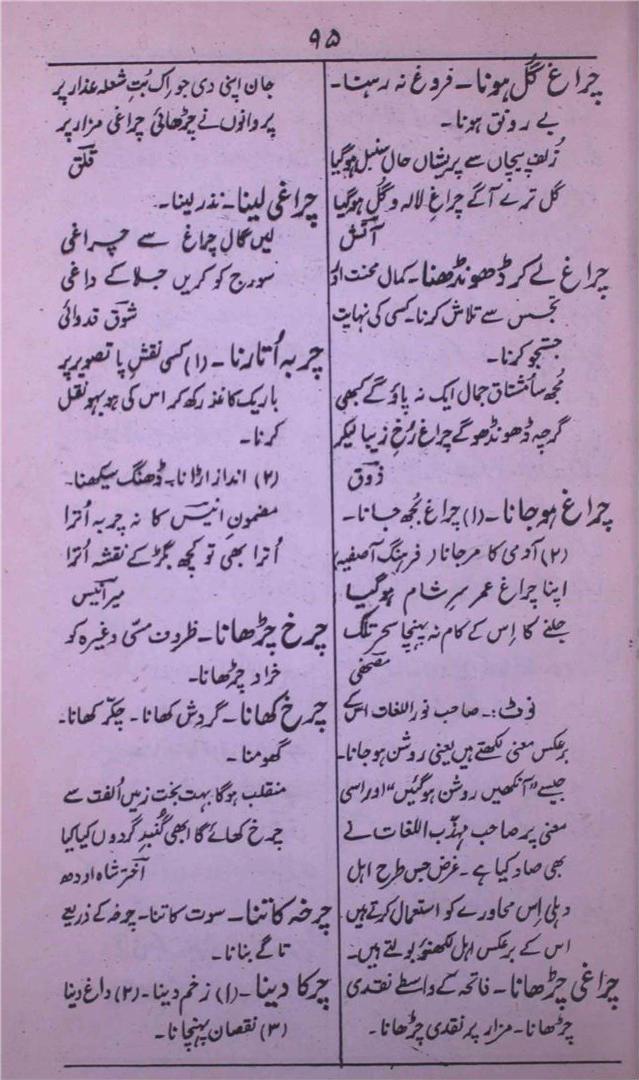 ۹۵
چراغ گُل ہونا۔ فروغ نہ رہنا۔
بے رونق ہونا۔
زُلفِ پیچاں سے پریشاں حال سنبل ہوگیا
گل ترے آگے چراغِ لالہ و گُل ہوگیا
آتش
چراغ لے کر ڈھونڈھنا۔ کمال محنت اور
تجسس سے تلاش کرنا۔ کسی کی نہایت
جستجو کرنا۔
مُجھ سا مشتاق جمال ایک نہ پاؤ گے کبھی
گرچہ ڈھونڈھو گے چراغِ رُخِ زیبا لیکر
ذوق
چراغ ہو جانا۔ (۱) چراغ بُجھ جانا۔
(۲) آدمی کا مرجانا (فرہنگ آصفیہ)
اپنا چراغ عمر سرِ شام ہوگیا
جلنے کا اِس کے کام نہ پہنچا سحر تلک
مصحفی
نوٹ:۔ صاحب نور اللغات اس کے
برعکس معنی لکھتے ہیں یعنی روشن ہوجانا۔
جیسے "آنکھیں روشن ہوگئیں" اور اسی
معنی پر صاحب مہذّب اللغات نے
بھی صاد کیا ہے۔ غرض جس طرح اہل
دہلی اِس محاورے کو استعمال کرتے ہیں
اس کے برعکس اہل لکھنؤ بولتے ہیں۔
چراغی چڑھانا۔ فاتحہ کے واسطے نقدی
چڑھانا۔ مزار پر نقدی چڑھانا۔
جان اپنی دی جو اِک بُتِ شعلہ عذار پر
پروانوں نے چڑھائی چراغی مزار پر
قلق
چراغی لینا۔ نذر لینا۔
لیں گالِ چراغ سے چراغی
سورج کو کریں جلا کے داغی
شوق قدوائی
چربہ اُتارنا۔ (۱) کسی نقش یا تصویر پر
باریک کاغذ رکھ کر اس کی ہوبہو نقل
کرنا۔
(۲) انداز اڑانا۔ ڈھنگ سیکھنا۔
مضمونِ انیس کا نہ چربہ اُترا
اُترا بھی تو کچھ بگڑ کے نقشہ اُترا
میر انیس
چرخ چڑھانا۔ ظروف مسّی وغیرہ کو
خراد چڑھانا۔
چرخ کھانا۔ گردش کھانا۔ چکّر کھانا۔
گھومنا۔
منقلب ہوگا بہت بخت زمیں اُلفت سے
چرخ کھائے گا ابھی گُنبدِ گردوں کیا کیا
اختر شاہ اودھ
چرخہ کاتنا۔ سوت کاتنا۔ چرخہ کے ذریعے
تاگے بنانا۔
چرکا دینا۔ (۱) زخم دینا۔ (۲) داغ دینا
(۳) نقصان پہنچانا۔